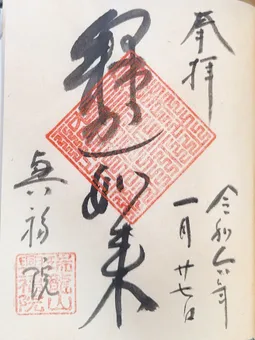 奉拝
令和六年
一月廿七日
釋迦如来
興福院